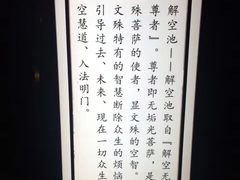 解空池——解空池取自『解空无
尊者』。尊者即无垢光菩萨，是
殊菩萨的使者，显文殊的空智。
文殊特有的智慧断除众生的烦恼
引导过去、未来、现在一切众生
空慧道、入法明门。